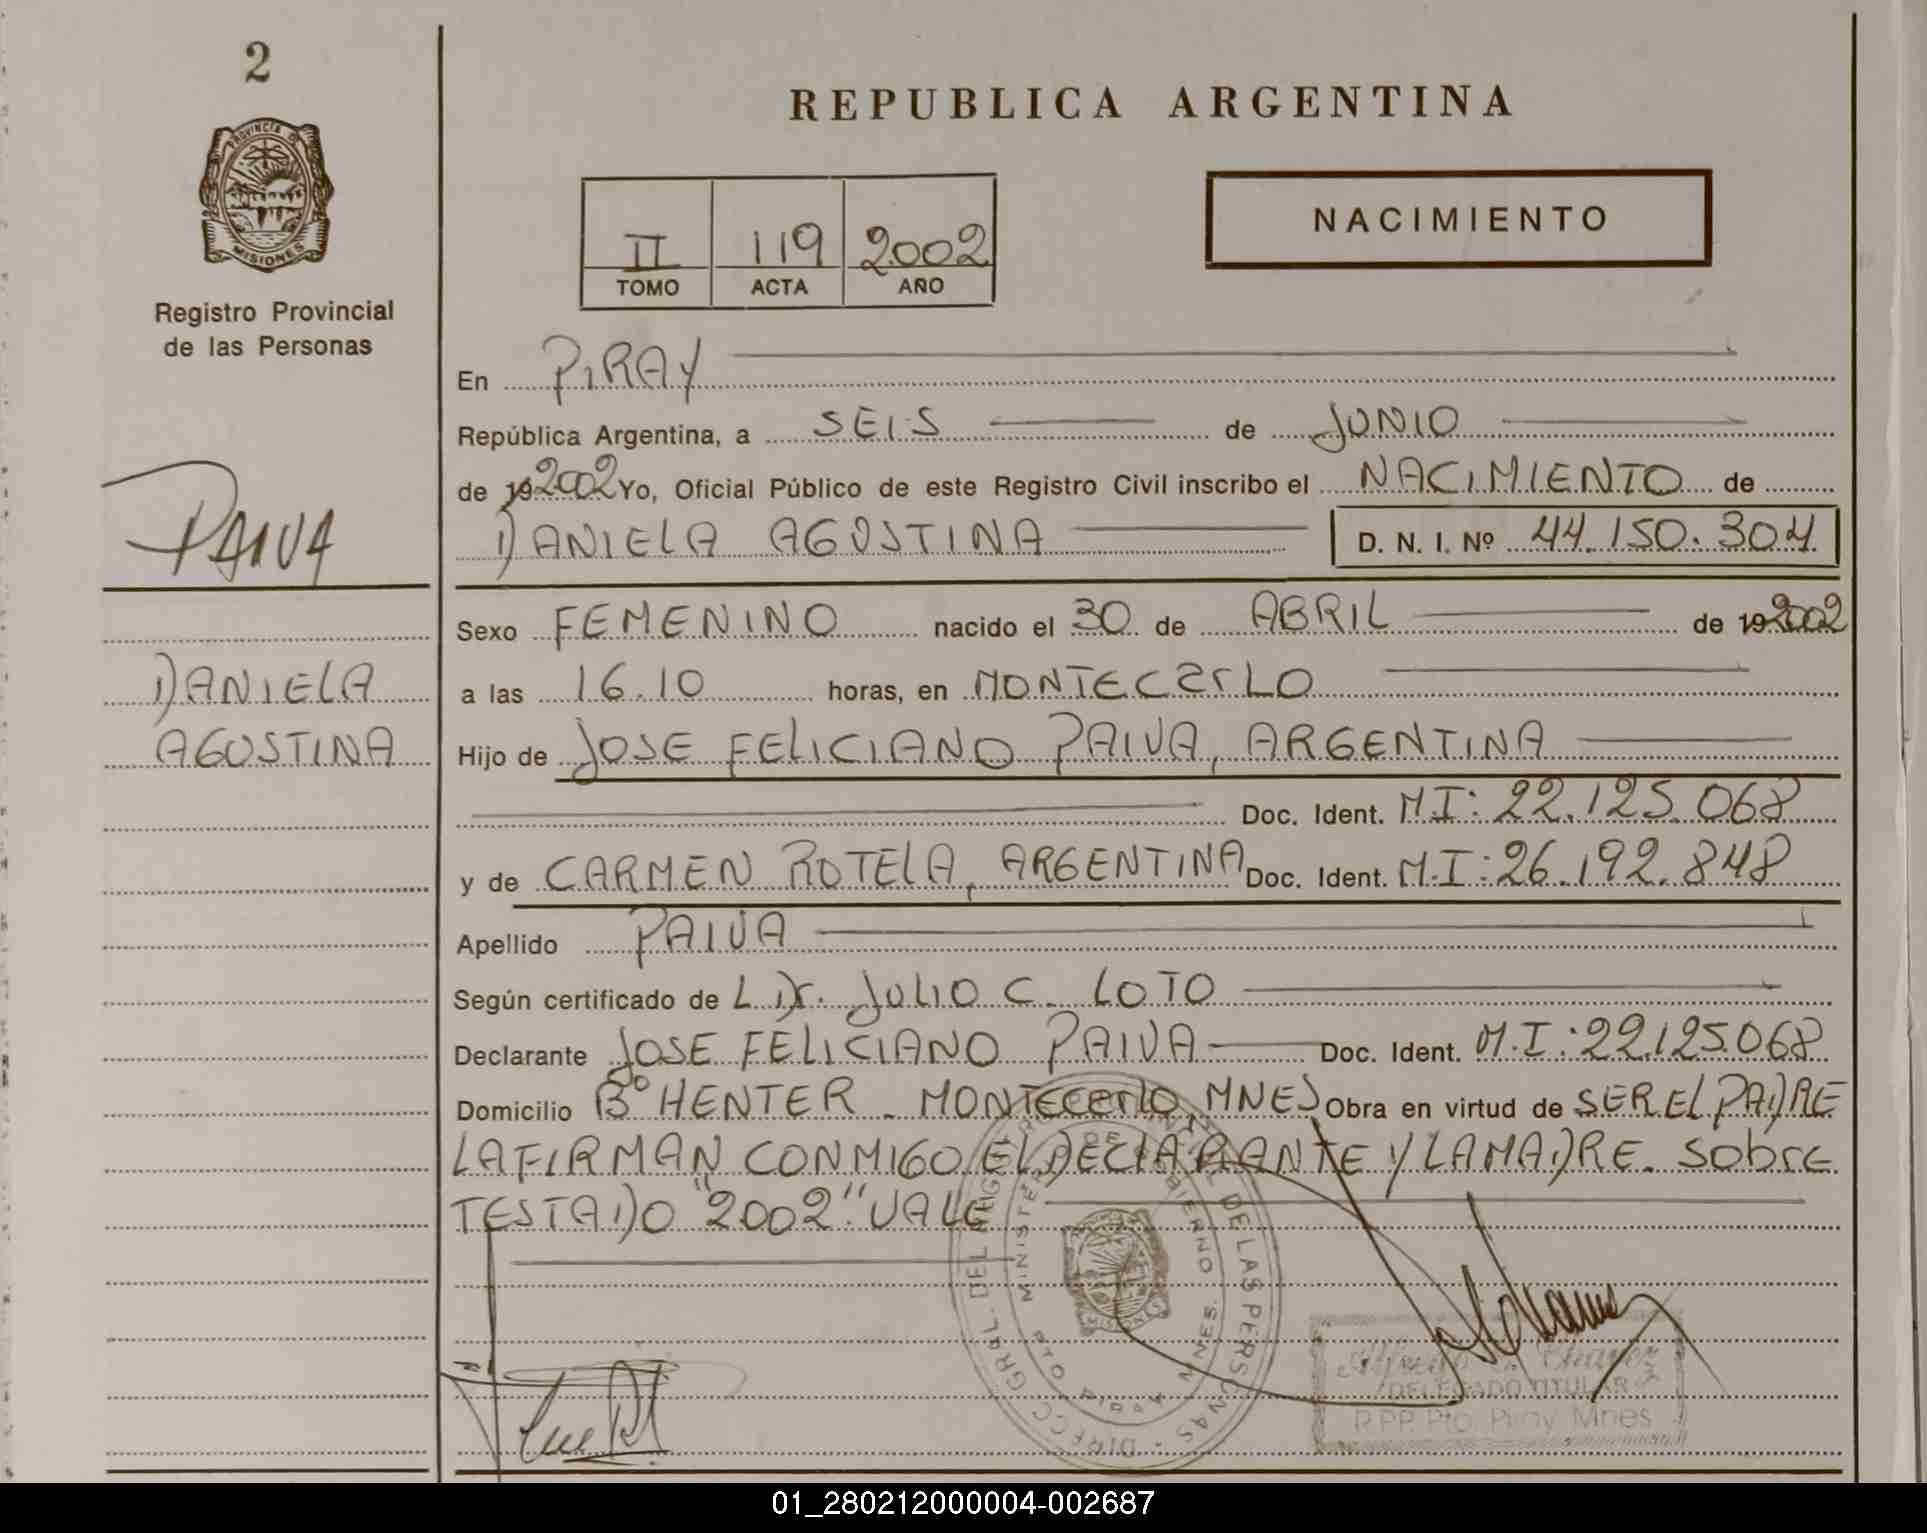 2
PROVINCIA DE
MISIONES
Registro Provincial
de las Personas
PAIVA
DANIELA
AGOSTINA
REPUBLICA ARGENTINA
II 119 2002
TOMO ACTA AÑO
NACIMIENTO
En PIRAY
República Argentina, a SEIS de JUNIO
de 19 2002 Yo, Oficial Público de este Registro Civil inscribo el NACIMIENTO de
DANIELA AGOSTINA D. N. I. Nº 44.150.304
Sexo FEMENINO nacido el 30 de ABRIL de 19 2002
a las 16.10 horas, en MONTECarLO
Hijo de JOSE FELICIANO PAIVA, ARGENTINA
Doc. Ident. M I: 22.125.068
y de CARMEN ROTELA, ARGENTINA Doc. Ident. M.I: 26.192.848
Apellido PAIVA
Según certificado de L Dr. JULIO C. LOTO
Declarante JOSE FELICIANO PAIVA Doc. Ident. M.I: 22.125.068
Domicilio Bº HENTER. MONTECarlo, MNES Obra en virtud de SER EL PADRE
LA FIRMAN CONMIGO EL DECLARANTE Y LA MADRE. Sobre
TESTADO "2002" VALE
DIRECC. GRAL. DEL REGISTRO PROVINCIAL DE LAS PERSONAS
MINISTERIO DE GOBIERNO
PTO PIRAY MNES.
MISIONES
Chavez
DELEGADO TITULAR
R.P.P. Pto. Piray Mnes
01_280212000004-002687